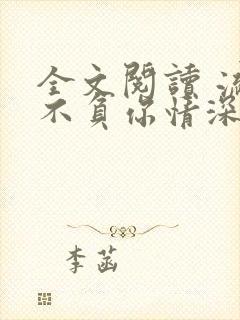 全文閱讀
不負你情深
李菡